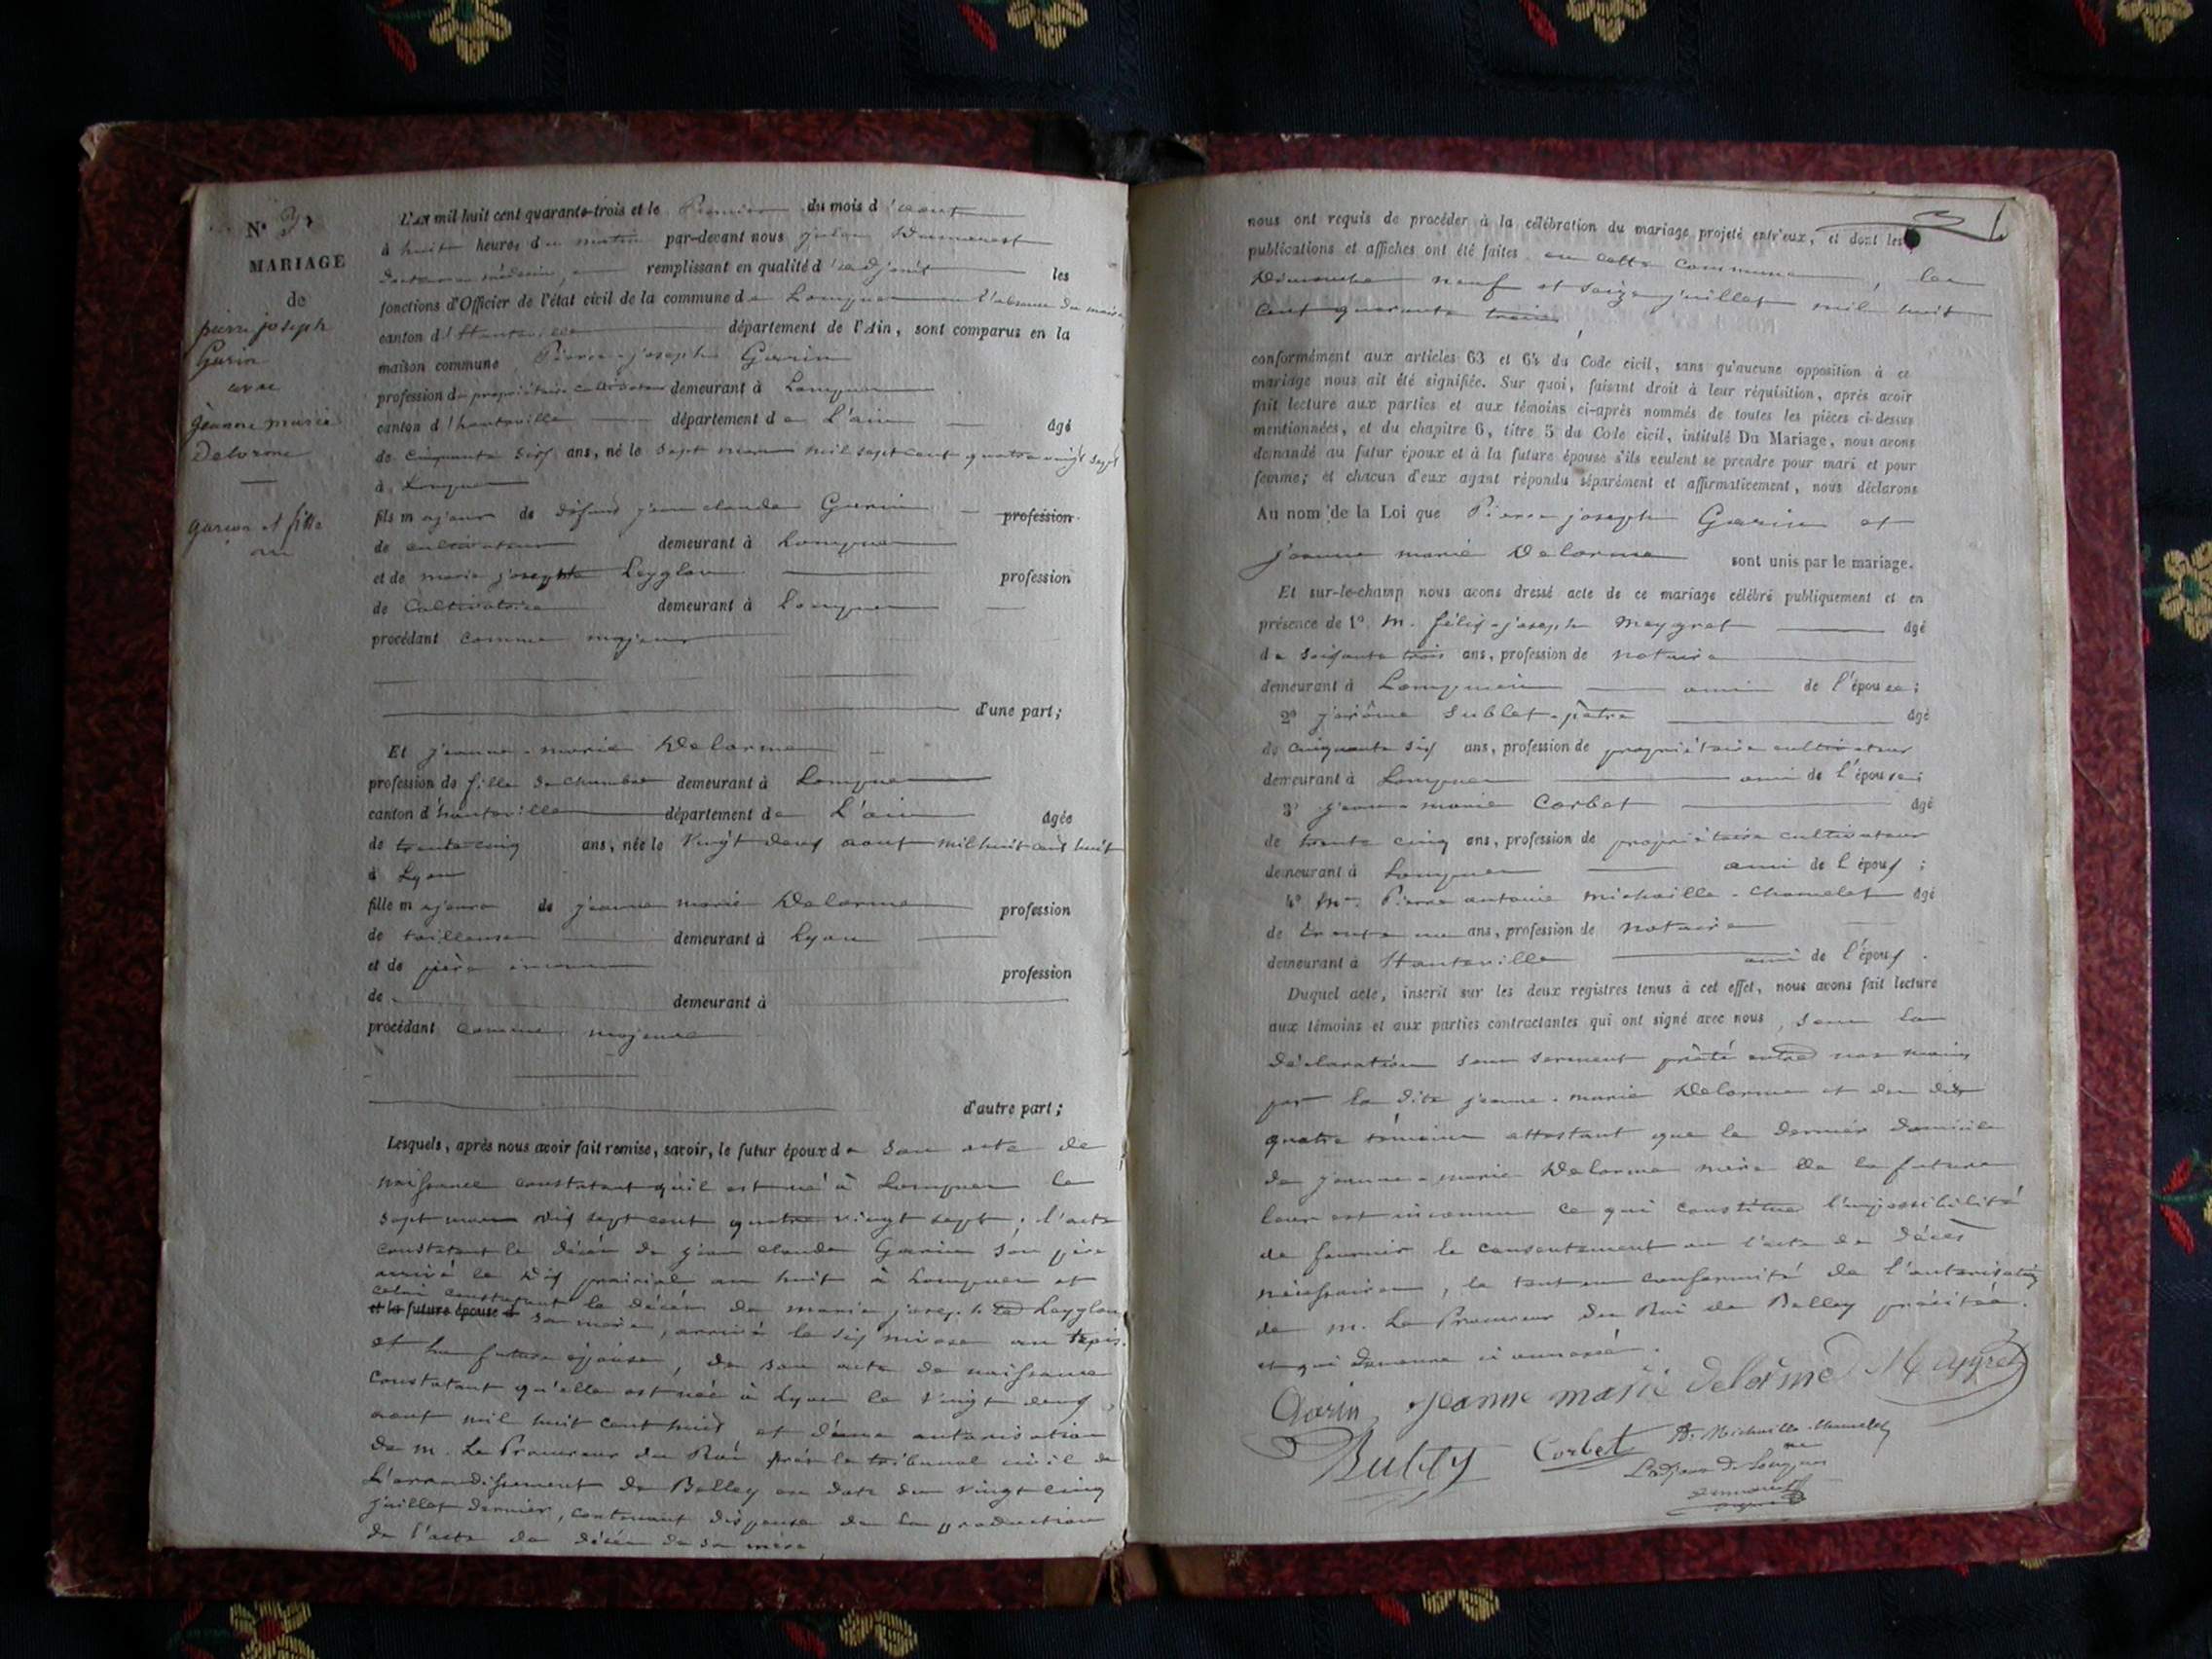 N° 3
MARIAGE
de
pierre joseph
Garin
avec
jeanne marie
Delorme
garçon et fille
L'an mil huit cent quarante-trois et le Premier du mois d'aout
à huit heures du matin par-devant nous jules
docteur en médecine, remplissant en qualité d'adjoint les
fonctions d'Officier de l'état civil de la commune de Lompnes en l'absence du maire,
canton d'Hauteville département de l'Ain, sont comparus en la
maison commune Pierre-joseph Garin
profession de propriétaire cultivateur demeurant à Lompnes
canton d'hauteville département de L'ain âgé
de Cinquante six ans, né le sept mars mil sept cent quatre vingt sept
à Lompnes
fils majeur de défunt jean claude Garin profession
de cultivateur demeurant à Lompnes
et de marie josephte Leyglon profession
de Cultivatrice demeurant à Lompnes
procédant comme majeur
d'une part;
Et jeanne-marie Delorme
profession de fille de chambre demeurant à Lompnes
canton d'hauteville département de L'ain âgée
de trente cinq ans, née le vingt deux aout mil huit cent huit
à Lyon
fille majeure de jeanne marie Delorme profession
de tailleuse demeurant à Lyon
et de père inconnu profession
de demeurant à
procédant comme majeure
d'autre part;
Lesquels, après nous avoir fait remise, savoir, le futur époux de son acte de
naissance constatant qu'il est né à Lompnes le
sept mars dix sept cent quatre vingt sept; l'acte
constatant le décès de jean claude Garin son père
arrivé le dix prairial an huit à Lompnes et
celui constatant le décès de marie joseph te Leyglon
et la future épouse d sa mère, arrivé le six nivose an
et la future épouse, de son acte de naissance
constatant qu'elle est née à Lyon le vingt deux
aout mil huit cent huit, et d'une autorisation
de m. Le Procureur du Roi près le tribunal civil de
L'arrondissement de Belley en date du vingt cinq
juillet dernier, contenant dispense de la production
de l'acte de décès de sa mère,
nous ont requis de procéder à la célébration du mariage projeté entr'eux, et dont les
publications et affiches ont été faites en cette commune, les
Dimanches neuf et seize juillet mil huit
Cent quarante trois,
conformément aux articles 63 et 64 du Code civil, sans qu'aucune opposition à ce
mariage nous ait été signifiée. Sur quoi, faisant droit à leur réquisition, après avoir
fait lecture aux parties et aux témoins ci-après nommés de toutes les pièces ci-dessus
mentionnées, et du chapitre 6, titre 5 du Code civil, intitulé Du Mariage, nous avons
demandé au futur époux et à la future épouse s'ils veulent se prendre pour mari et pour
femme; et chacun d'eux ayant répondu séparément et affirmativement, nous déclarons
Au nom de la Loi que Pierre joseph Garin et
jeanne marie Delorme sont unis par le mariage.
Et sur-le-champ nous avons dressé acte de ce mariage célébré publiquement et en
présence de 1° M. félix-joseph Meygret âgé
de soixante trois ans, profession de notaire
demeurant à Lompnes ami de l'épouse;
2° jérôme Sublet-pètre âgé
de cinquante six ans, profession de propriétaire cultivateur
demeurant à Lompnes ami de l'épouse;
3° jean-marie Corbet âgé
de trente cinq ans, profession de propriétaire cultivateur
demeurant à Lompnes ami de l'époux;
4° Mr. Pierre antoine michaille-Chamelet âgé
de trente un ans, profession de notaire
demeurant à Hauteville ami de l'époux.
Duquel acte, inscrit sur les deux registres tenus à cet effet, nous avons fait lecture
aux témoins et aux parties contractantes qui ont signé avec nous, sous la
déclaration sous serment prêté entre nos mains
par la dite jeanne-marie Delorme et des dits
quatre témoins attestant que le dernier domicile
de jeanne-marie Delorme mère de la future
leur est inconnu ce qui constitue l'impossibilité
de fournir le consentement ou l'acte de décès
nécessaires, le tout en conformité de l'autorisation
de m. Le Procureur du Roi de Belley précitée.
et qui demeure ci annexée.
Garin Jeanne marie delorme Meygret
Corbet A. Michaille-Chamelet
L'adjoint de Lompnes